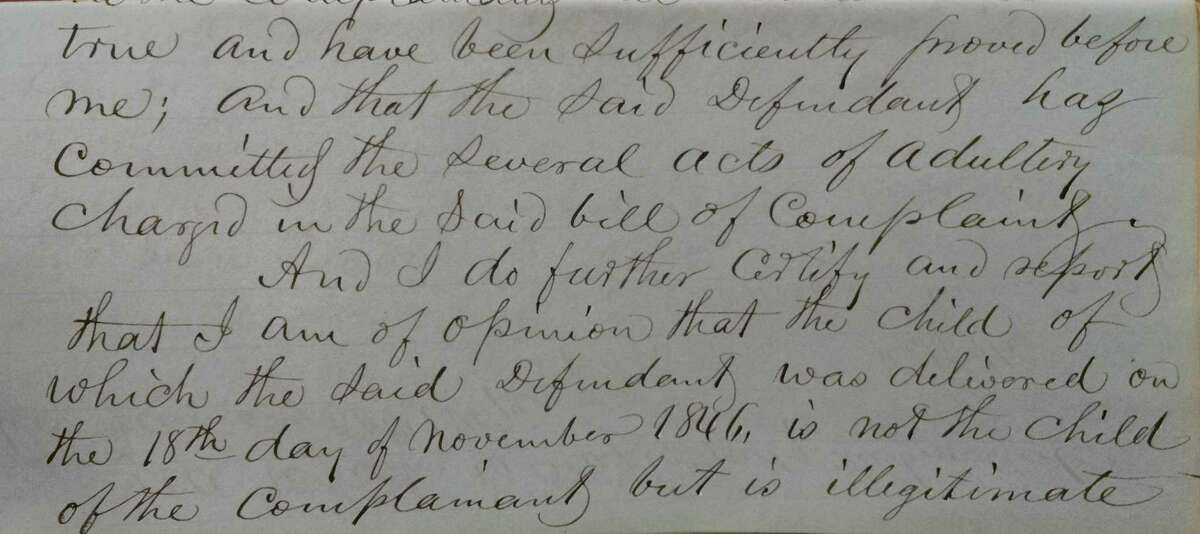 true and have been sufficiently proved before
me; and that the said Defendant has
Committed the several acts of adultery
Charged in the said bill of Complaint.
And I do further Certify and report
that I am of opinion that the child of
which the said Defendant was delivered on
the 18th day of November 1846, is not the child
of the Complainant but is illegitimate